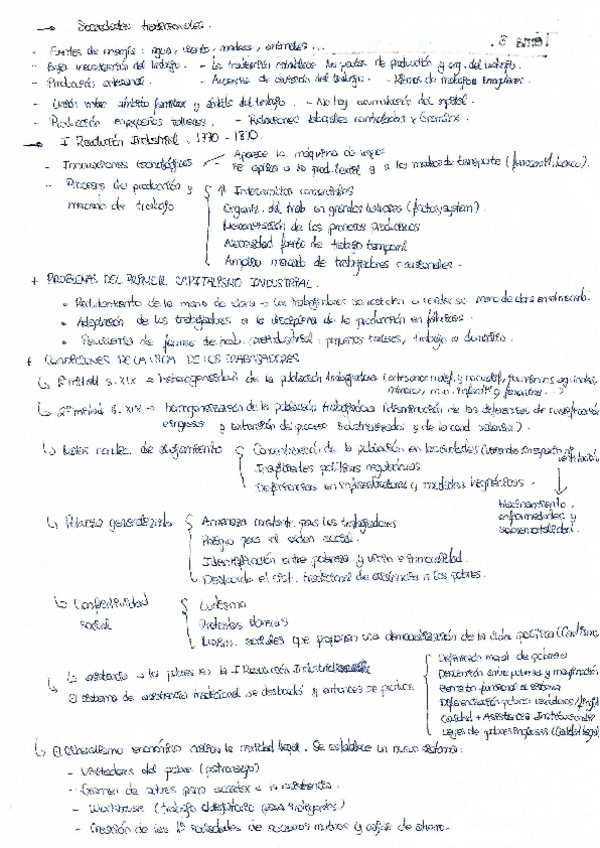 → Sociedades tradicionales.
- Fuentes de energía: agua, viento, madera, animales...
- Baja mecanización del trabajo. - La tradición las pautas de producción y org. del trabajo.
- Producción artesanal. - Ausencia de división del trabajo. - Ritmos de trabajo irregulares.
- Unión entre ámbito familiar y ámbito del trabajo. - No hay acumulación del capital.
- Producción en pequeños talleres. - Relaciones laborales controladas x Gremios.
→ I Revolución Industrial. 1770 - 1870.
- Innovaciones tecnológicas Aparece la máquina de vapor
se aplica a la prod. textil y a los medios de transporte (ferrocarril, barco).
- Proceso de producción y mercado de trabajo
↑ Intercambios comerciales
Organiz. del trab en grandes (factory system).
Mecanización de los procesos productivos
Necesidad fuerte de trabajo temporal
Amplio mercado de trabajadores ocasionales.
+ PROBLEMAS DEL PRIMER CAPITALISMO INDUSTRIAL.
• Reclutamiento de la mano de obra → los trabajadores se a vender su mano de obra en el mercado.
• Adaptación de los trabajadores a la disciplina de la producción en fábricas.
• de formas de trab. preindustrial: pequeños talleres, trabajo a domicilio.
+ CONDICIONES DE LA VIDA DE LOS TRABAJADORES
↳ 1ª mitad s. XIX → heterogeneidad de la población trabajadora
↳ 2ª mitad s. XIX → homogeneización de la población trabajadora (disminución de las diferencias de cualificación
e ingresos y extensión del proceso y de la cond. salarial).
↳ Malas condic. de alojamiento
Concentración de la población en las ciudades (viviendas sin espacio ni ventilación)
políticas regulatorias
Deficiencias en infraestructuras y medidas higiénicas.
↓
Hacinamiento, enfermedades y sobremortalidad.
↳ Pobreza generalizada
Amenaza constante para los trabajadores
Peligro para el orden social.
Identificación entre pobreza y vicio e inmoralidad.
Desborda el sist. tradicional de asistencia a los pobres.
↳ Conflictividad social
Ludismo
Protestas
Movim. sociales que proponen una democratización de la vida política
↳ La asistencia a los pobres en la I Revolución Industrial
El sistema de asistencia tradicional se desbordó y entonces se produce
moral de pobreza
entre pobreza y marginación
funcional al sistema
Diferenciación pobres
Caridad + Asistencia Institucional
Leyes de pobres inglesas
↳ El liberalismo económico la caridad legal. Se establece un nuevo sistema:
- Visitadores del pobre (patronazgo)
- Examen de pobres para acceder a la asistencia.
- Workhouse (trabajo obligatorio para indigentes)
- Creación de las 1ª sociedades de socorros mutuos y cajas de ahorro.